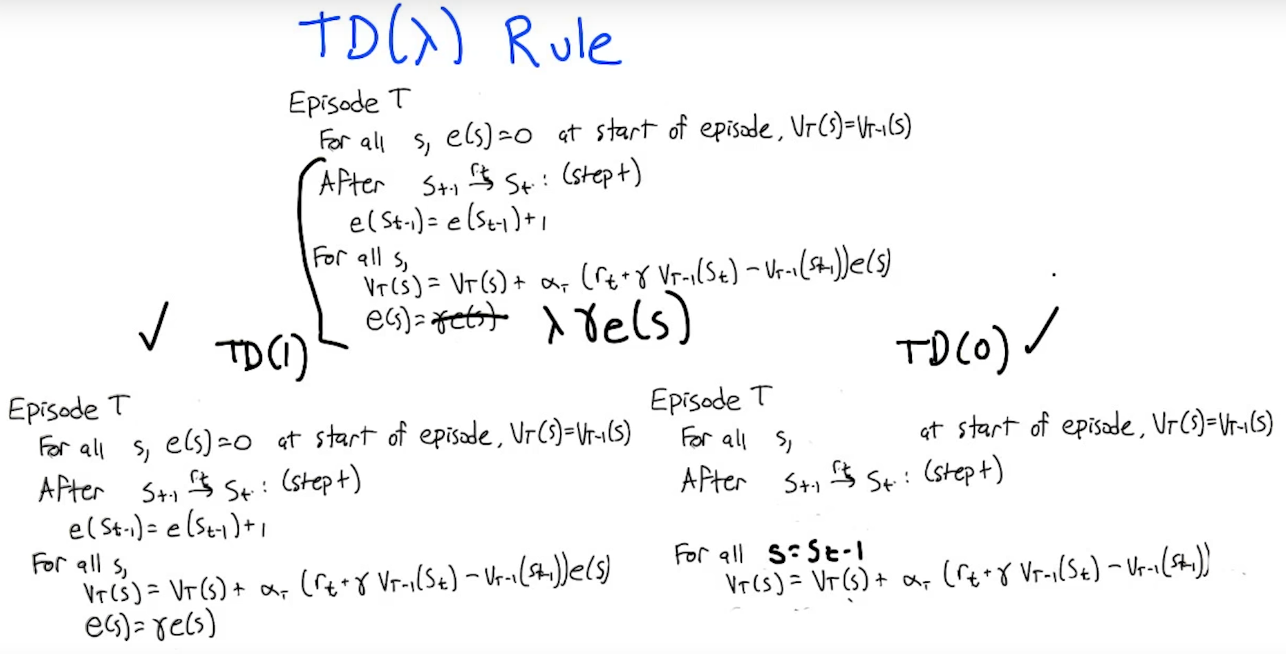 TD(λ) Rule
Episode T
For all s, e(s)=0 at start of episode, V_T(s)=V_{T-1}(s)
After S_{t-1} →^{r_t} S_t : (step t)
e(S_{t-1})= e(S_{t-1})+1
For all s,
V_T(s)= V_T(s)+ α_T (r_t+γ V_{T-1}(S_t) − V_{T-1}(S_{t-1}))e(s)
e(s)= γe(s) λγe(s)
✓ TD(1)
Episode T
For all s, e(s)=0 at start of episode, V_T(s)=V_{T-1}(s)
After S_{t-1} →^{r_t} S_t : (step t)
e(S_{t-1})= e(S_{t-1})+1
For all s,
V_T(s)= V_T(s)+ α_T (r_t+γ V_{T-1}(S_t) − V_{T-1}(S_{t-1}))e(s)
e(s)= γe(s)
TD(0) ✓
Episode T
For all s, at start of episode, V_T(s)=V_{T-1}(s)
After S_{t-1} →^{r_t} S_t : (step t)
For all s=S_{t-1}
V_T(s)= V_T(s)+ α_T (r_t+γ V_{T-1}(S_t) − V_{T-1}(S_{t-1}))